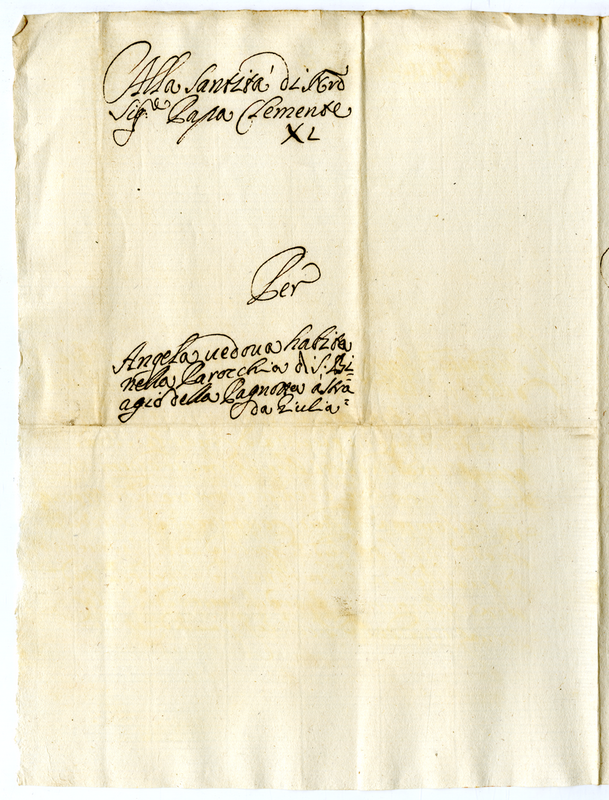 Alla Santità di Nrô
Sig.re Papa Clemente
XI
Per
Angela uedoua habita
nella Parocchia di S. Bi=
agio della Pagnotta à stra=
da Giulia=